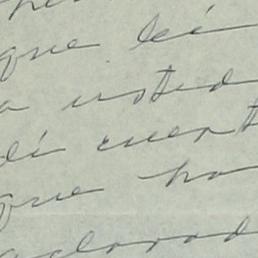 que leí
a usted
dí cuent
que ha